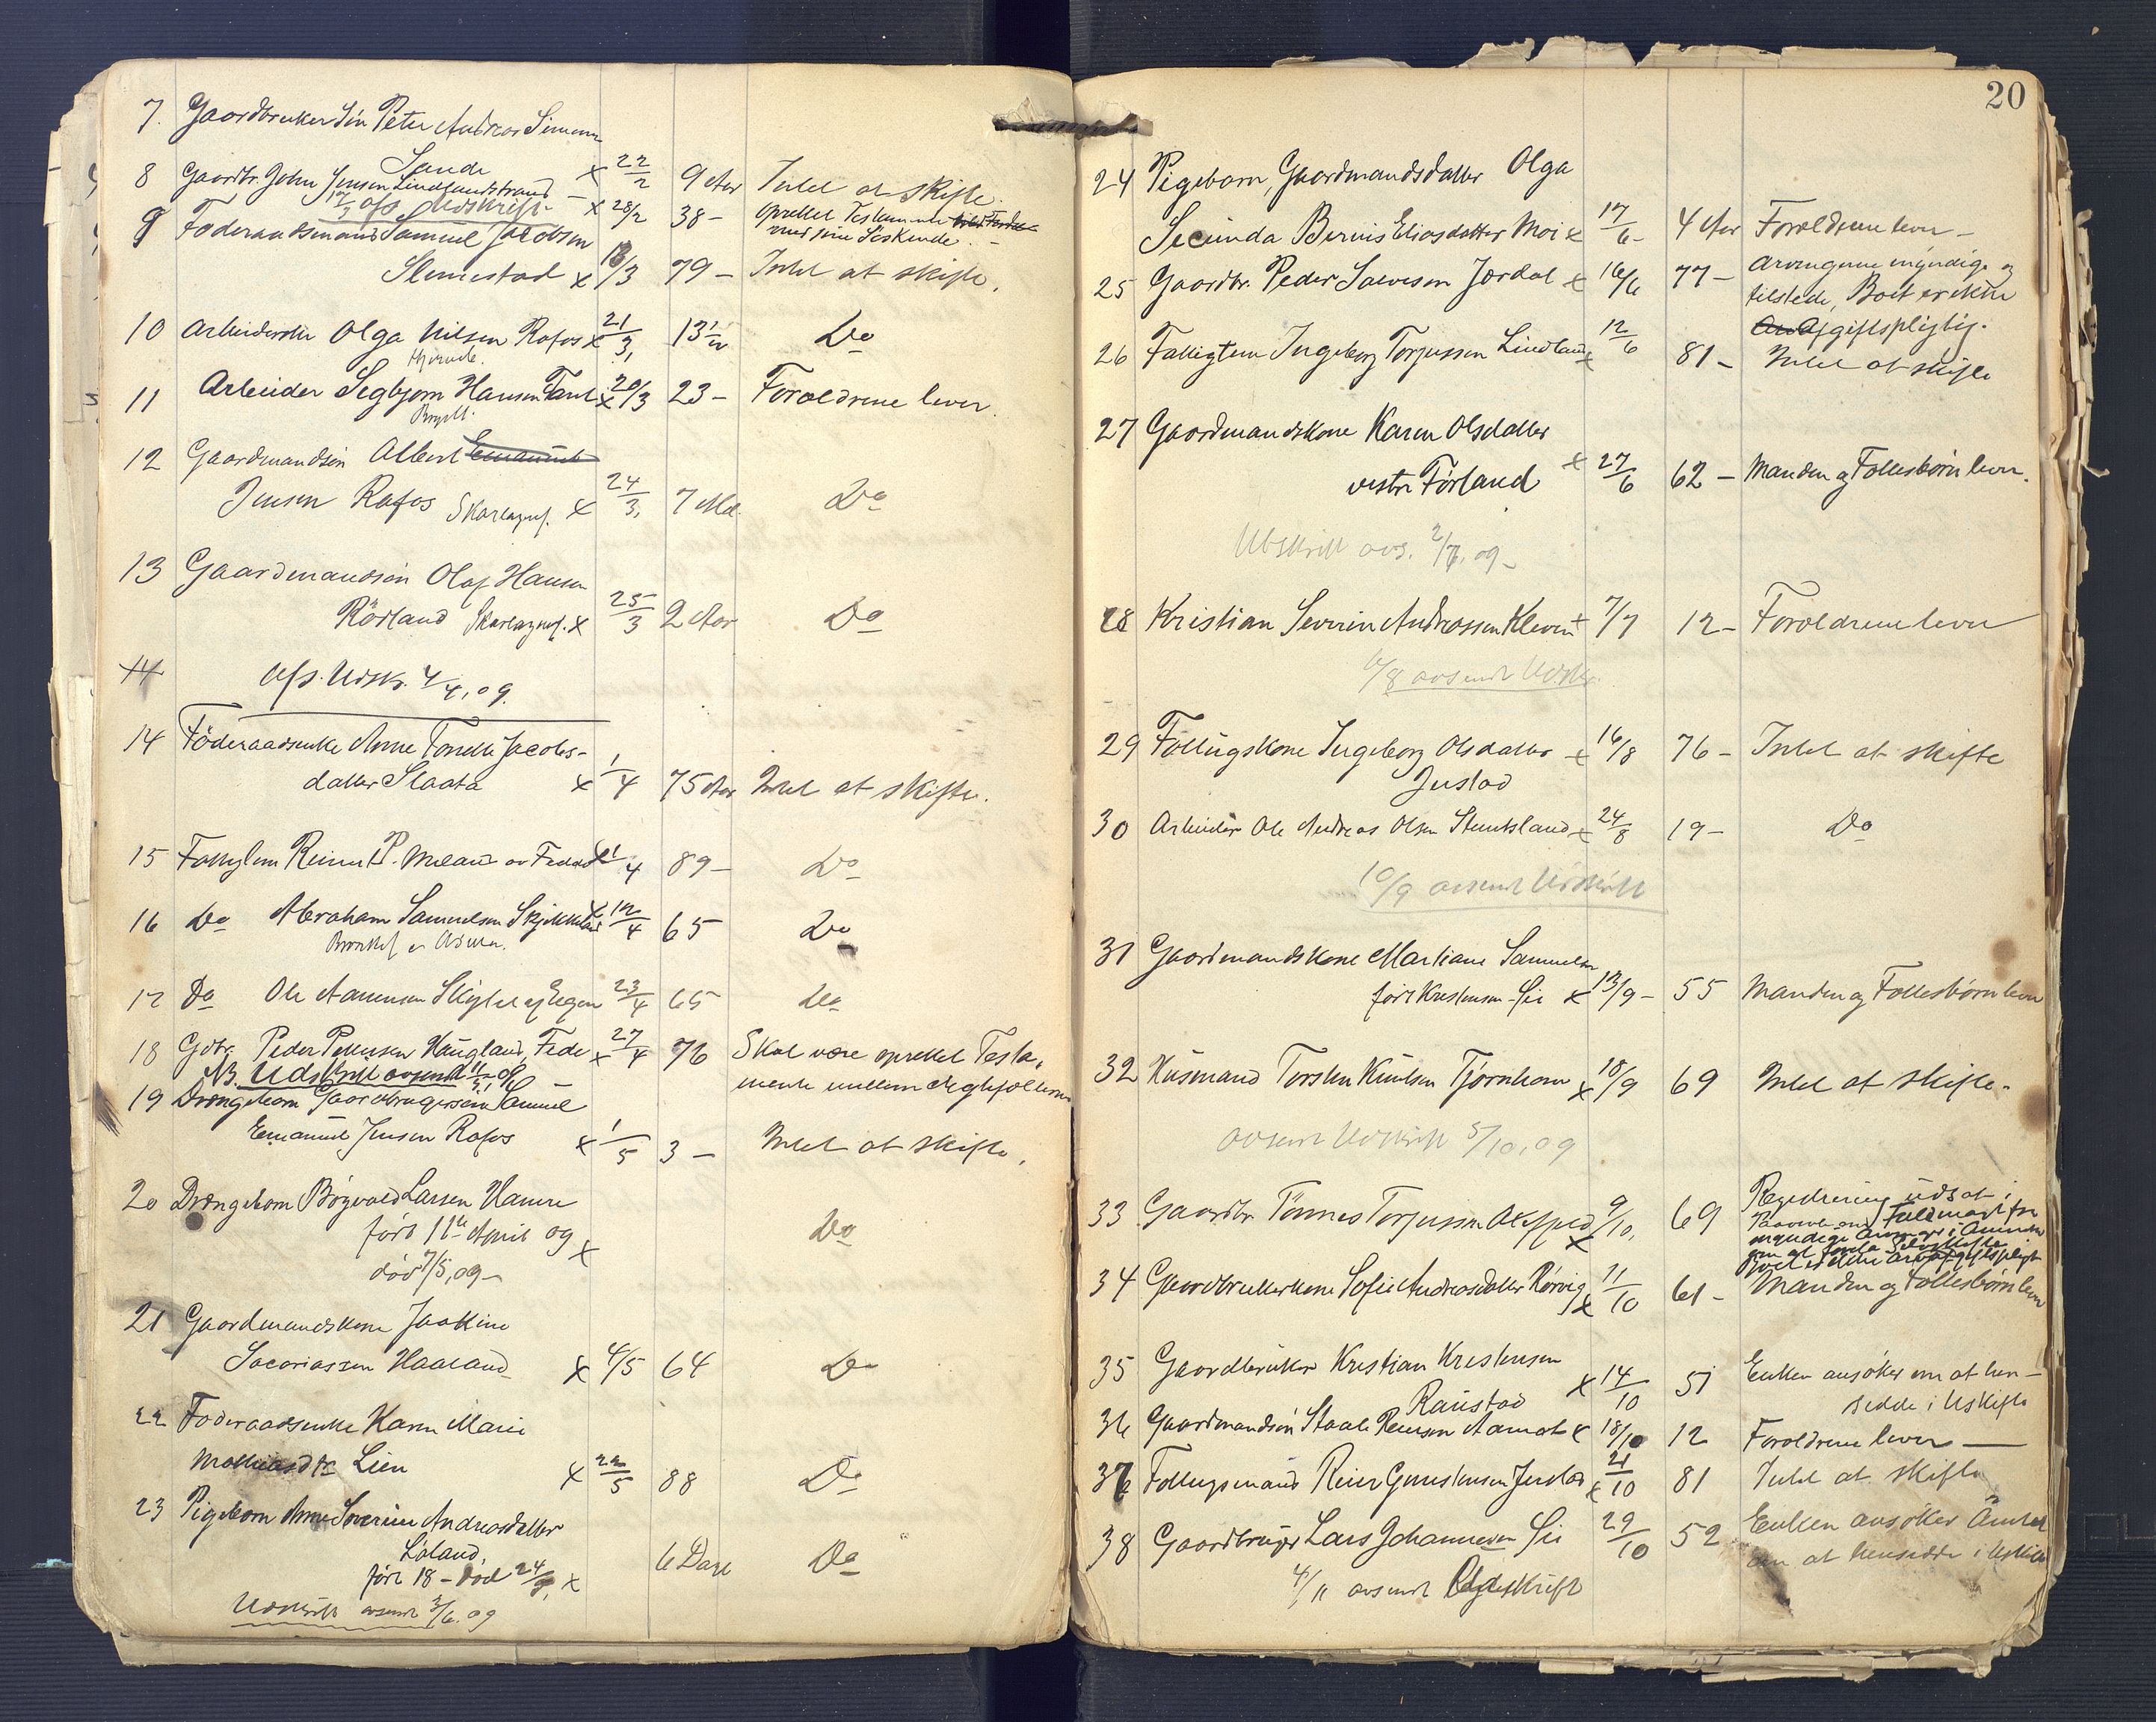 7. Gaardbruker Søn Peter Andreas Simonsen
Sande x 22/2 9 Aar Intet at skifte.
8 Gaardbr. John Jensen Lindlandstrand x 28/2 38 - oprettet Testamente
med sine Søskende. -
afs. Udskrift
9 Føderaadsmand Samuel Jacobsen
Slimestad x 13/3 79 - Intet at skifte.
10 Arbeiderske Olga Nilsen Rafos x 21/3, 13 1/2 Do
Hjerneb.
11 Arbeider Segbjørn Hansen x 20/3 23 - Forældrene lever.
12 Gaardmandsøn Albert Emanuel
Jensen Rafos Skarlagensf. x 24/3, 7 Md. Do
13 Gaardmandsøn Olaf Hansen
Rørland Skarlagensf. x 25/3 2 Aar Do
14
Afs. Udskr. 4/4, 09.
14 Føderaadsenke Anne Tonette Jacobs-
datter Slaata x 1/4 75 Aar Intet at skifte.
15 Fattiglem Reinert P. Meland 4 89 - Do
16 Do Abraham Samuelsen x 12/4 65 Do
17 Do Ole Aanensen 23/4 65 Do
18 Gdbr. Peder Pettersen Haugland, Fede x 27/4 76 Skal være oprettet Testa-
mente mellem Ægtefællerne
NB. Udskrift avsendt
19 Drengebarn Gaardbrugersøn Samuel
Emanuel Jensen Rafos x 1/5 3 - Intet at skifte.
20 Drengebarn Børgvald Larsen Hamre
født 11te April og x
død 7/5, 09 - Do
21 Gaardmandskone Joakine
Sacariassen Haaland x 4/5 64 Do
22 Føderaadsenke Karen Marie
Mathiasdtr Lien x 22/5 88 Do
23 Pigebarn Anne Severine Andreasdatter
Løland,
født 18 - død 24/5, x 6 Dage Do
Udskrift avsendt 3/6. 09
20
24 Pigebarn, Gaardmandsdatter Olga
Secunda Bernis Eliasdatter Moi x 17/6 - 4 Aar Forældrene lever -
25 Gaardbr. Peder Salvesen Jordal x 16/6 77 - Arvingerne myndige og
tilstede, Boet er ikke
Afgiftspligtig.
26 Fattiglem Ingeborg Torjussen Lindland x 12/6 81 - Intet at skifte
27 Gaardmandskone Karen Olsdatter
vestre Førland x 27/6 62 - Manden og Fællesbørn lever.
Udskrift avs. 2/7. 09 -
28 Kristian Severin Andreassen Kleven + 7/7 12 - Forældrene lever
6/8 avsendt Udskr.
29 Fattigskone Ingeborg Olsdatter x 16/8 76 - Intet at skifte
Justad
30 Arbeider Ole Andreas Olsen Stuntsland x 24/8 19 - Do
10/9 avsendt Udskrift
31 Gaardmandskone Martiane Samuelsen
født Kristensen x 13/9 - 55 Manden og Fællesbørn lever
32 Husmand Torsten Knutsen Tjørnhom x 18/9 69 Intet at skifte.
avsendt Udskrift 5/10, 09
33 Gaardbr. Tønnes Torjussen x 9/10, 69 Registrering udsat i
Paavente av Fuldmagt fra
myndige Arvinger i Amerika
om at foreta Selvskifte
34 Gaardbrukerkone Sofie Andreasdatter Rørvig x 11/10 61 - Manden og Fællesbørn lever
35 Gaardbruker Kristian Kristensen
Raustad x 14/10 51 Enken ansøker om at hen-
sidde i Uskifte
36 Gaardmandsøn Staale Reiersen Aamot x 18/10 12 Forældrene lever -
37 Fattigsmand Reier Gunstensen Justad x 21/10 81 Intet at skifte
38 Gaardbruger Lars Johannesen 29/10 52 Enken ansøker Amtet
om at hensidde i Uskifte
4/11 avsendt Udskrift